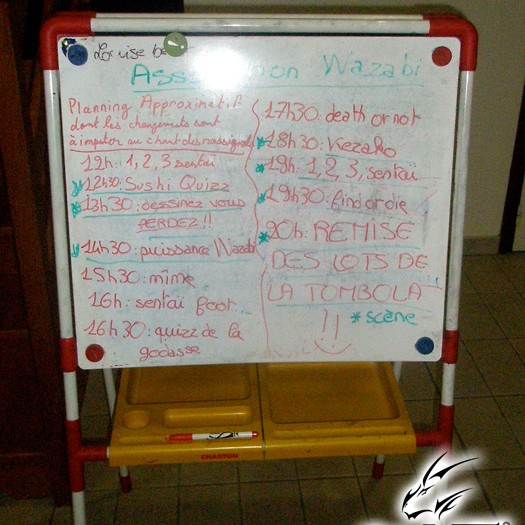 Louise
Association Wazabi
Planning Approximatif
dont les changements sont
à imputer au chant des rossignols
12h: 1, 2, 3 sentaï
*12h30: Sushi Quizz
*13h30: dessinez vous
PERDEZ!!
*14h30: puissance Wazabi
15h30: mime
16h: sentai foot...
16h30: quizz de la
godasse
17H30: death or not
*18h30: Kezako
*19h: 1, 2, 3, sentaï
*19H30: find or die
*20h: REMISE
DES LOTS DE
LA TOMBOLA
!!
*scène
CHARTON